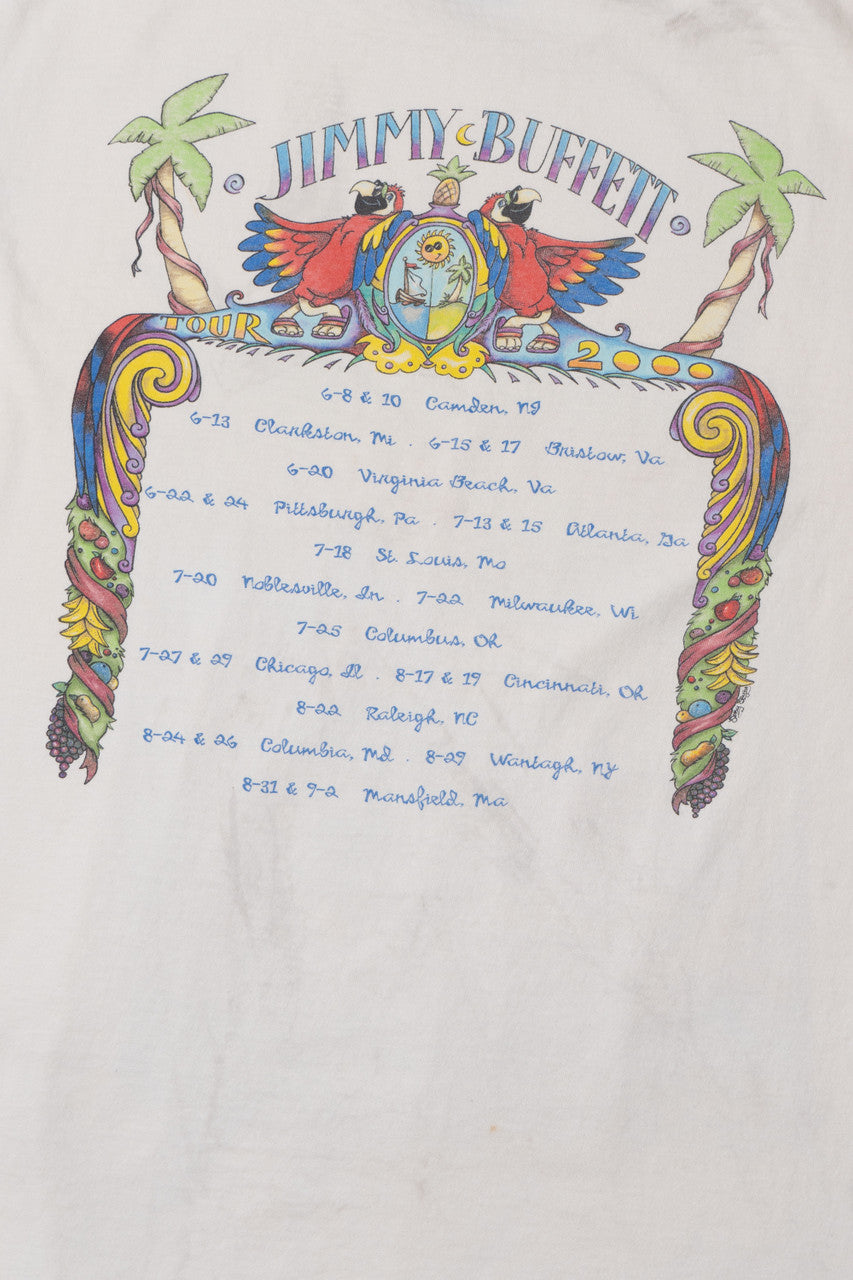 JIMMY BUFFETT
TOUR 2000
6-8 & 10 Camden, NJ
6-13 Clarkston, Mi . 6-15 & 17 Bristow, Va
6-20 Virginia Beach, Va
6-22 & 24 Pittsburgh, Pa . 7-13 & 15 Atlanta, Ga
7-18 St. Louis, Mo
7-20 Noblesville, In . 7-22 Milwaukee, Wi
7-25 Columbus, Oh
7-27 & 29 Chicago, Il . 8-17 & 19 Cincinnati, Oh
8-22 Raleigh, NC
8-24 & 26 Columbia, Md . 8-29 Wantagh, NY
8-31 & 9-2 Mansfield, Ma